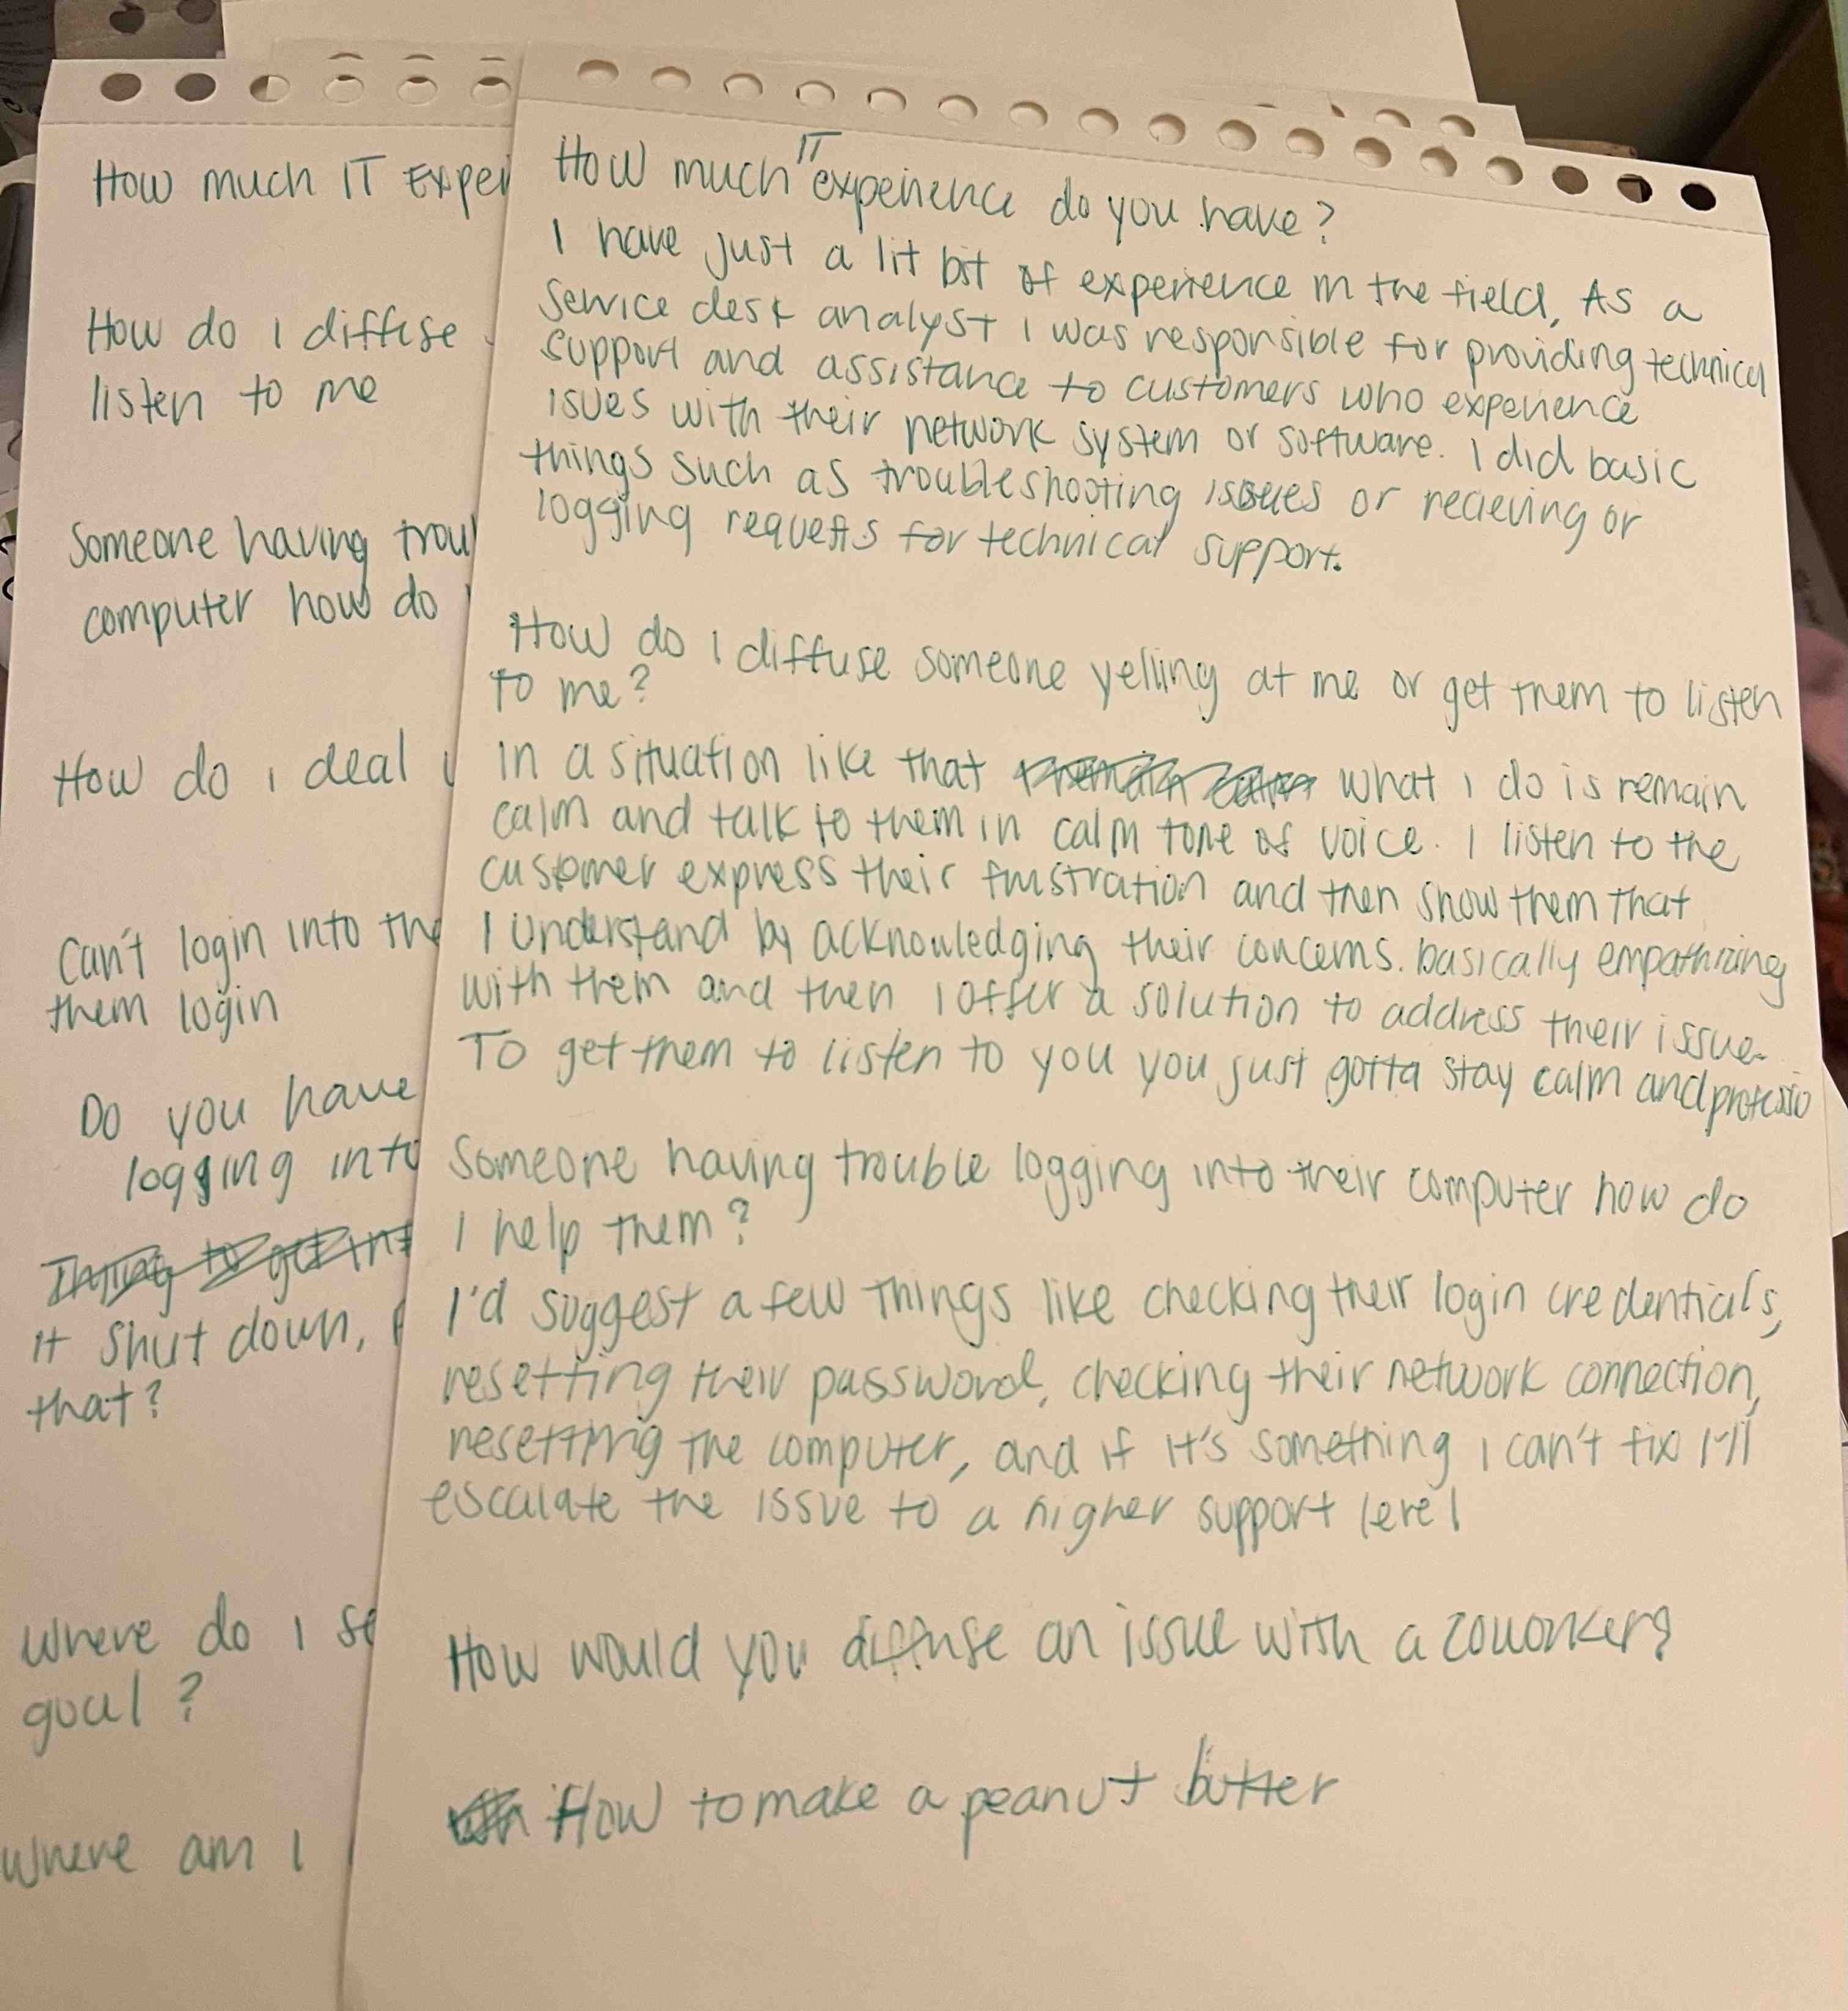 How much IT Exper
How do I diffuse
listen to me
Someone having trou
computer how do
How do I deal
Can't login into the
them login
Do you have
logging into
It shut down,
that?
Where do I se
goal?
Where am I
How much IT experience do you have?
I have just a lit bit of experience in the field, As a
Service desk analyst I was responsible for providing technical
support and assistance to customers who experience
isues with their network system or software. I did basic
things such as troubleshooting issues or recieving or
logging requests for technical support.
How do I diffuse someone yelling at me or get them to listen
to me?
In a situation like that what I do is remain
calm and talk to them in calm tone of voice. I listen to the
customer express their frustration and then show them that
I understand by acknowledging their concerns. basically empathizing
with them and then I offer a solution to address their issue.
To get them to listen to you you just gotta stay calm and professio
Someone having trouble logging into their computer how do
I help them?
I'd suggest a few things like checking their login credentials,
resetting their password, checking their network connection,
resetting the computer, and if it's something I can't fix I'll
escalate the issue to a higher support level
How would you diffuse an issue with a coworker?
How to make a peanut butter